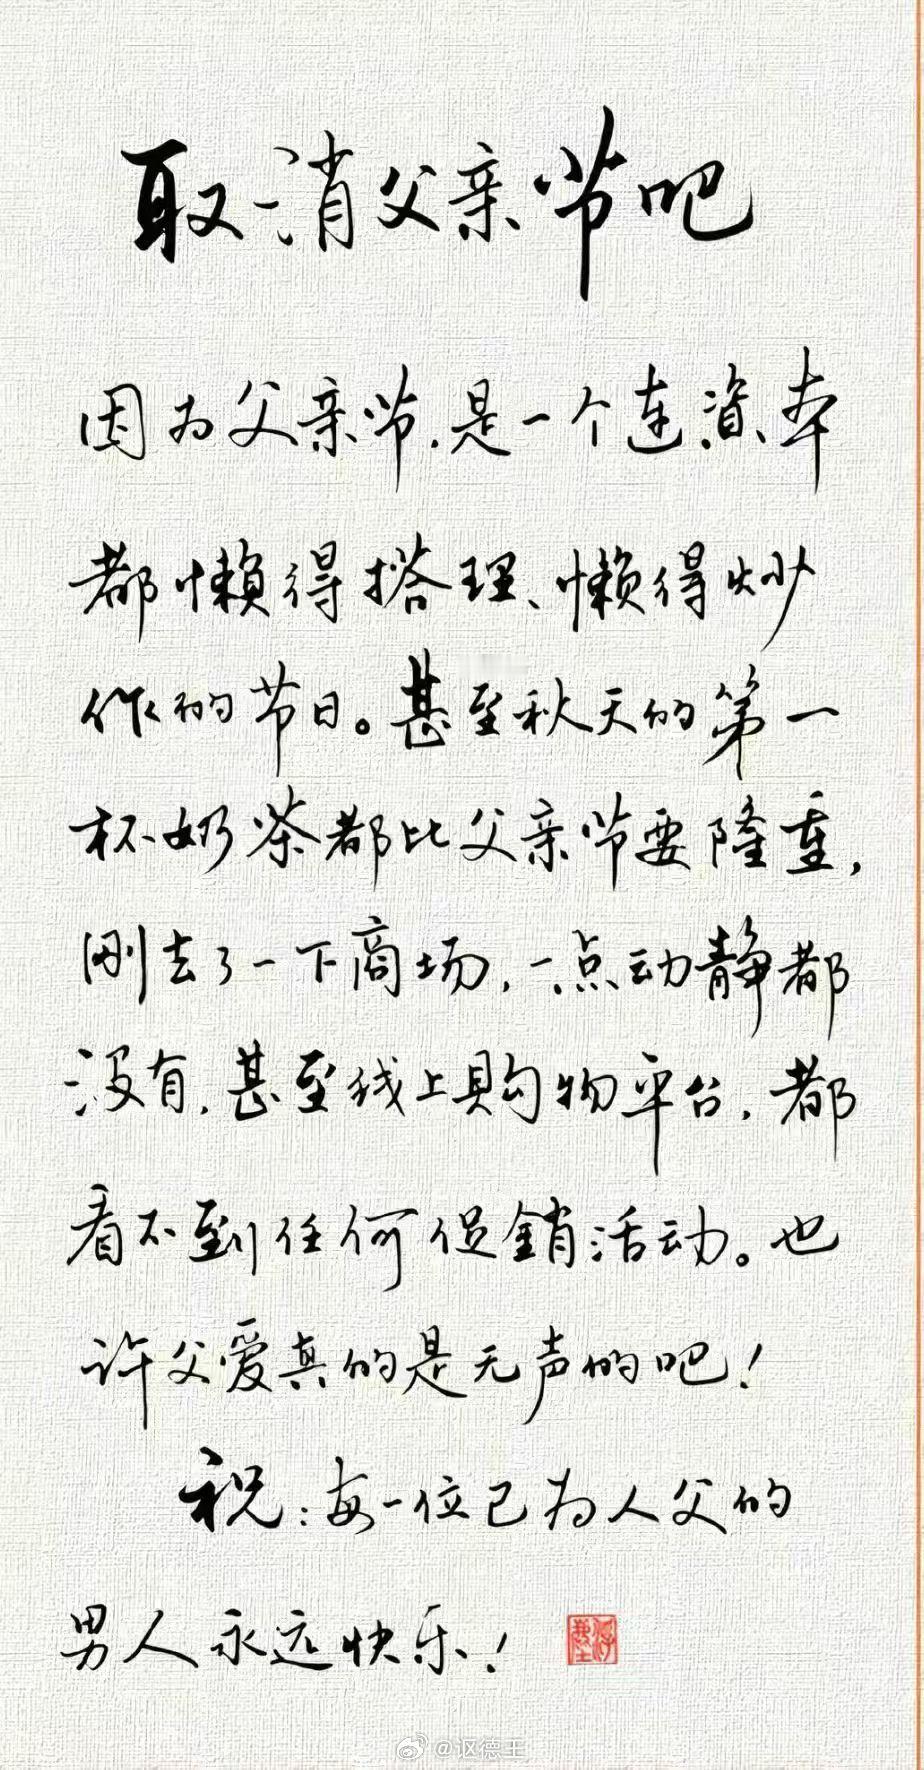 取消父亲节吧
因为父亲节，是一个连资本
都懒得搭理、懒得炒
作的节日。甚至秋天的第一
杯奶茶都比父亲节要隆重，
刚去了一下商场，一点动静都
没有，甚至线上购物平台，都
看不到任何促銷活动。也
许父爱真的是无声的吧！
祝：每一位已为人父的
男人永远快乐！
@讴德王